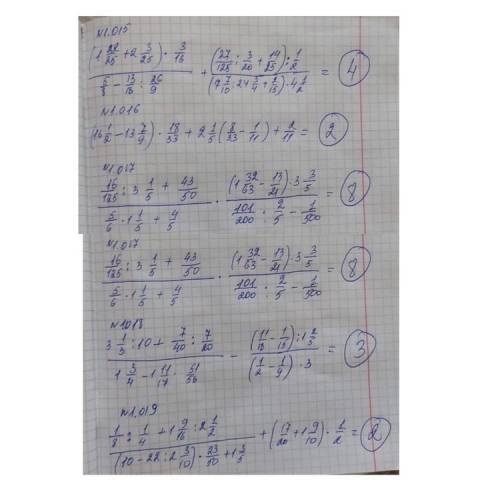 №1.015
(1 22/25 + 2 3/25) · 3/16 / 5/8 − 13/18 : 26/9 + (27/125 : 3/20 + 14/25) : 1/2 / (2 7/10 : 2,4 3/4 + 2/15) · 4 1/2 = 4
№1.016
(16 1/2 − 13 7/9) · 18/33 + 2 1/5 (8/33 − 1/11) + 2/11 = 2
№1.017
16/125 : 3 1/5 + 43/50 / 5/6 · 1 1/5 + 4/5 · (1 32/63 − 13/21) · 3 3/5 / 101/200 : 2/5 − 1/500 = 8
№1.017
16/125 : 3 1/5 + 43/50 / 5/6 · 1 1/5 + 4/5 · (1 32/63 − 13/21) · 3 3/5 / 101/200 : 2/5 − 1/500 = 8
№1018
3 1/3 : 10 + 7/40 : 7/20 / 1 3/4 − 1 11/17 · 51/56 − (11/18 − 1/15) : 1 2/3 / (1/2 − 1/9) · 3 = 3
№1.019
1/8 : 1/4 + 1 9/16 : 2 1/2 / (10 − 22 : 2 3/10) · 23/50 + 1 3/5 + (17/20 + 1 9/10) · 1/2 = 2